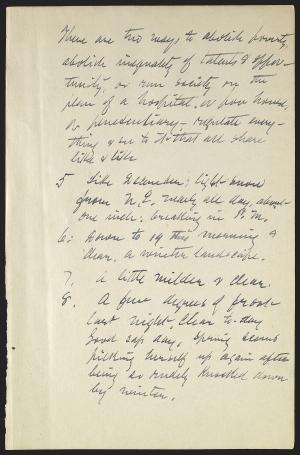 There are two ways to abolish poverty,
abolish inequality of talents & oppor-
tunity, or run society on the
plan of a hospital, or poor house,
or penitentiary – regulate every-
thing & see to it that all share
like & like
5 Like December; light snow
from N.E. nearly all day, about
one inch; breaking in P.M.
6. Down to 19 this morning &
clear, a winter landscape.
7. A little milder & clear.
8. A few degrees of frost
last night. Clear to-day
Good sap day. Spring seems
picking herself up again after
being so rudely knocked down
by winter.